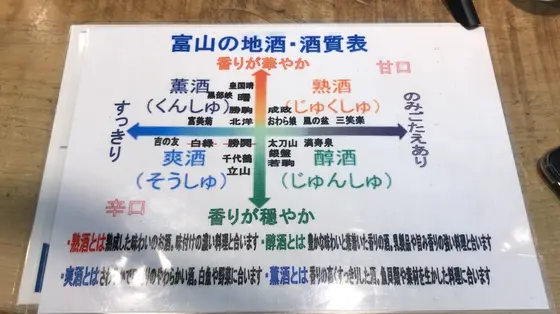 富山の地酒・酒質表
香りが華やか
甘口
薫酒
(くんしゅ)
皇国晴
黒部峡 曙
勝駒
富美菊 北洋
熟酒
(じゅくしゅ)
成政
おわら娘 風の盆 三笑楽
すっきり
のみごたえあり
吉の友 白緑 勝閧
千代鶴
立山
爽酒
(そうしゅ)
太刀山 満寿泉
銀盤
若駒
醇酒
(じゅんしゅ)
辛口
香りが穏やか
・熟酒とは熟成した味わいのお酒。味付けの濃い料理と合います
・醇酒とは 豊かな味わいと落着いた香りの酒。乳製品や旨み香りの強い料理と合います
・爽酒とは のやわらかい酒。白魚や野菜に合います
・薫酒とは 香りの高くすっきりした酒。魚貝類や素材を生かした料理に合います